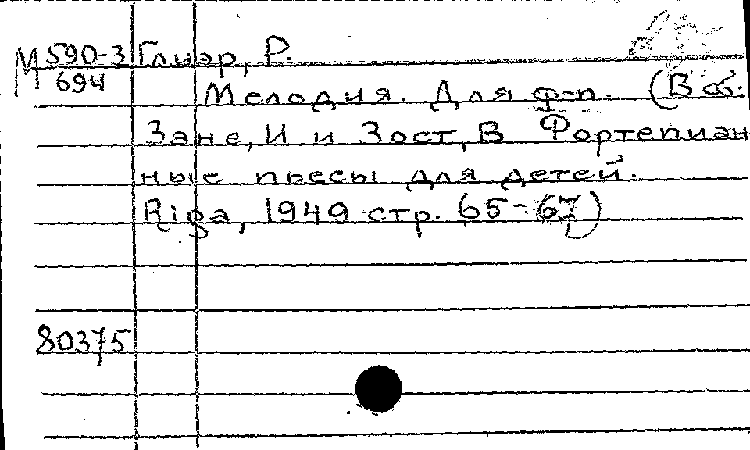 М 590-3 Глиэр, Р.
694
Мелодия. Для ф-п. (В сб.
Зане, И и Зост, В Фортепиан
ные пьесы для детей.
Riga, 1949 стр. 65-67)
80375